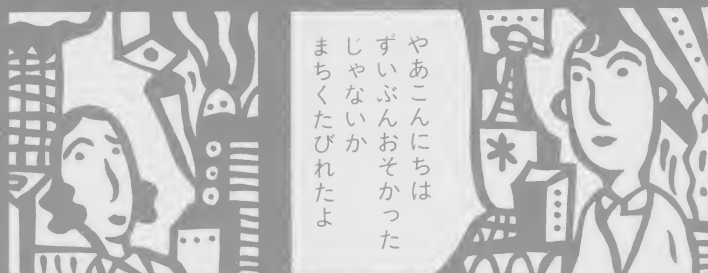 やあこんにちは
ずいぶんおそかった
じゃないか
まちくたびれたよ